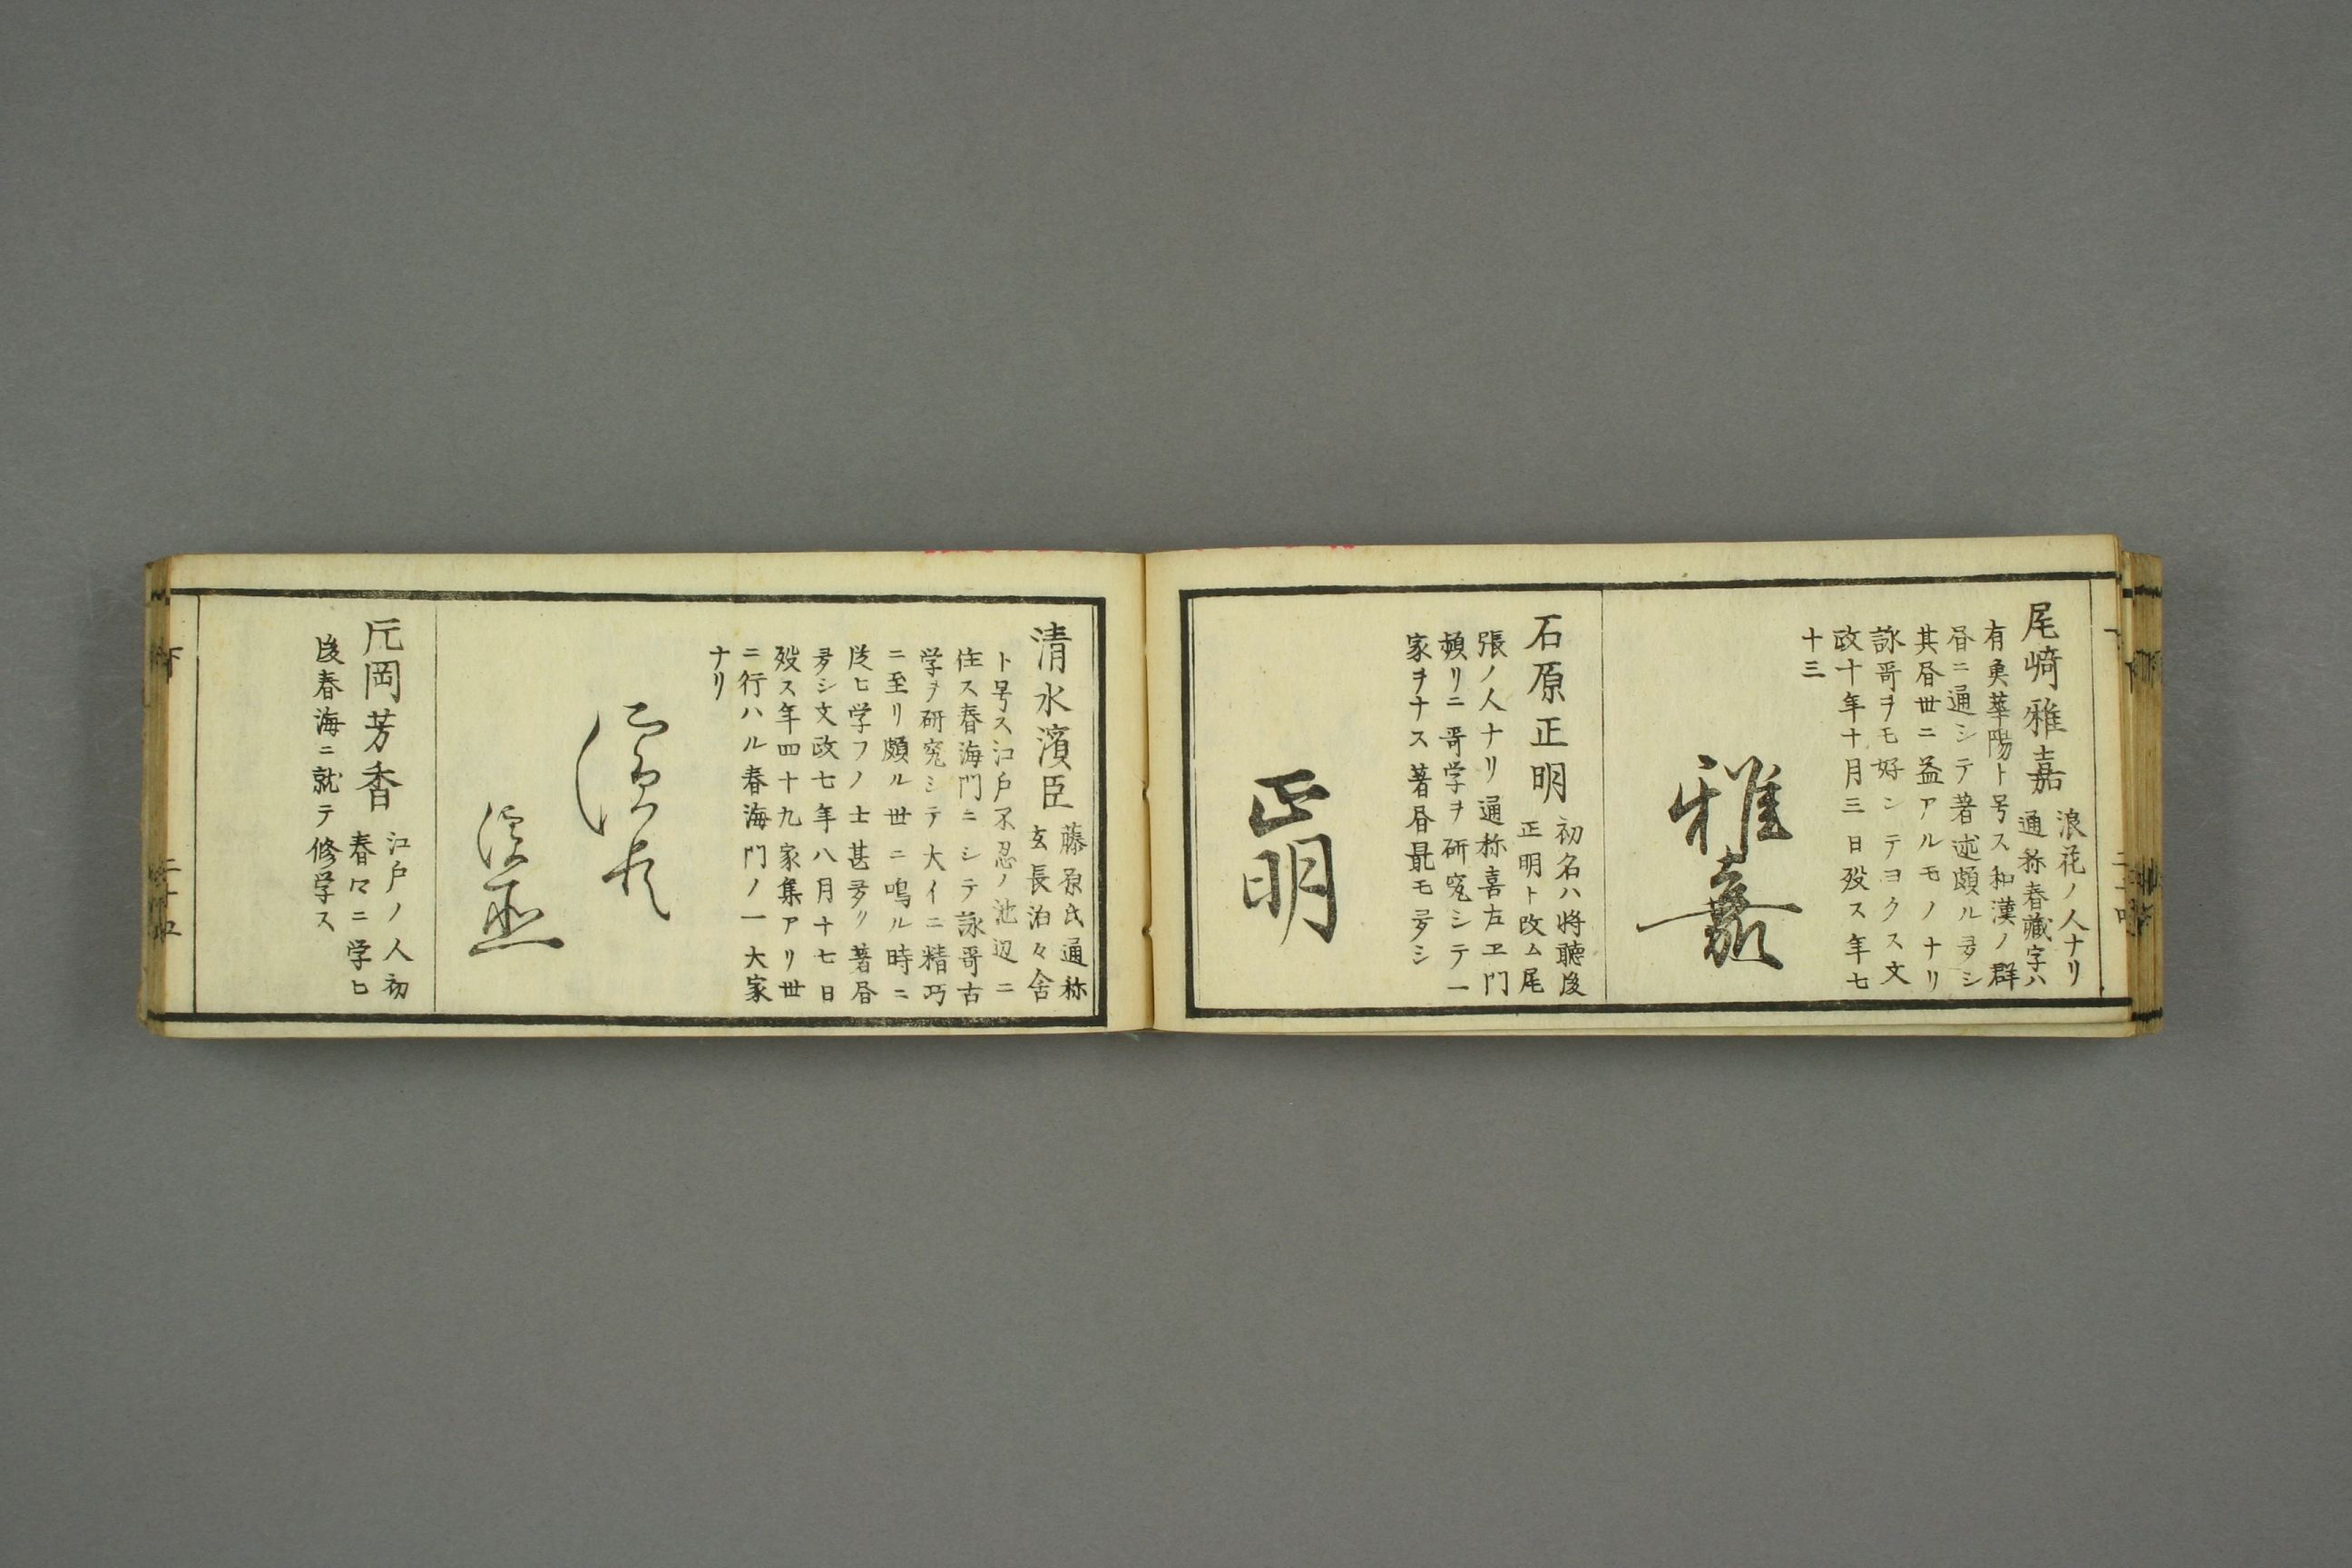 尾﨑雅嘉
浪花ノ人ナリ
通称春蔵字ハ
有魚華陽ト号ス和漢ノ群
昼ニ通シテ著述頗ル多シ
其昼世ニ益アルモノナリ
詠哥ヲモ好ンテヨクス文
政十年十月三日歿ス年七
十三
雅嘉
石原正明
初名ハ将聴後
正明ト改ム尾
張ノ人ナリ通称喜左ヱ門
頻リニ哥学ヲ研究シテ一
家ヲナス著昼最モ多シ
正明
清水濱臣
藤原氏通称
玄長泊々舎
ト号ス江戸不忍ノ池辺ニ
住ス春海門ニシテ詠哥古
学ヲ研究シテ大イニ精巧
ニ至リ頗ル世ニ鳴ル時ニ
従ヒ学フノ士甚多リ著昼
多シ文政七年八月十七日
歿ス年四十九家集アリ世
ニ行ハル春海門ノ一大家
ナリ
濱臣
濱臣
岡芳香
江戸ノ人初
春々ニ学ヒ
後春海ニ就テ修学ス
下